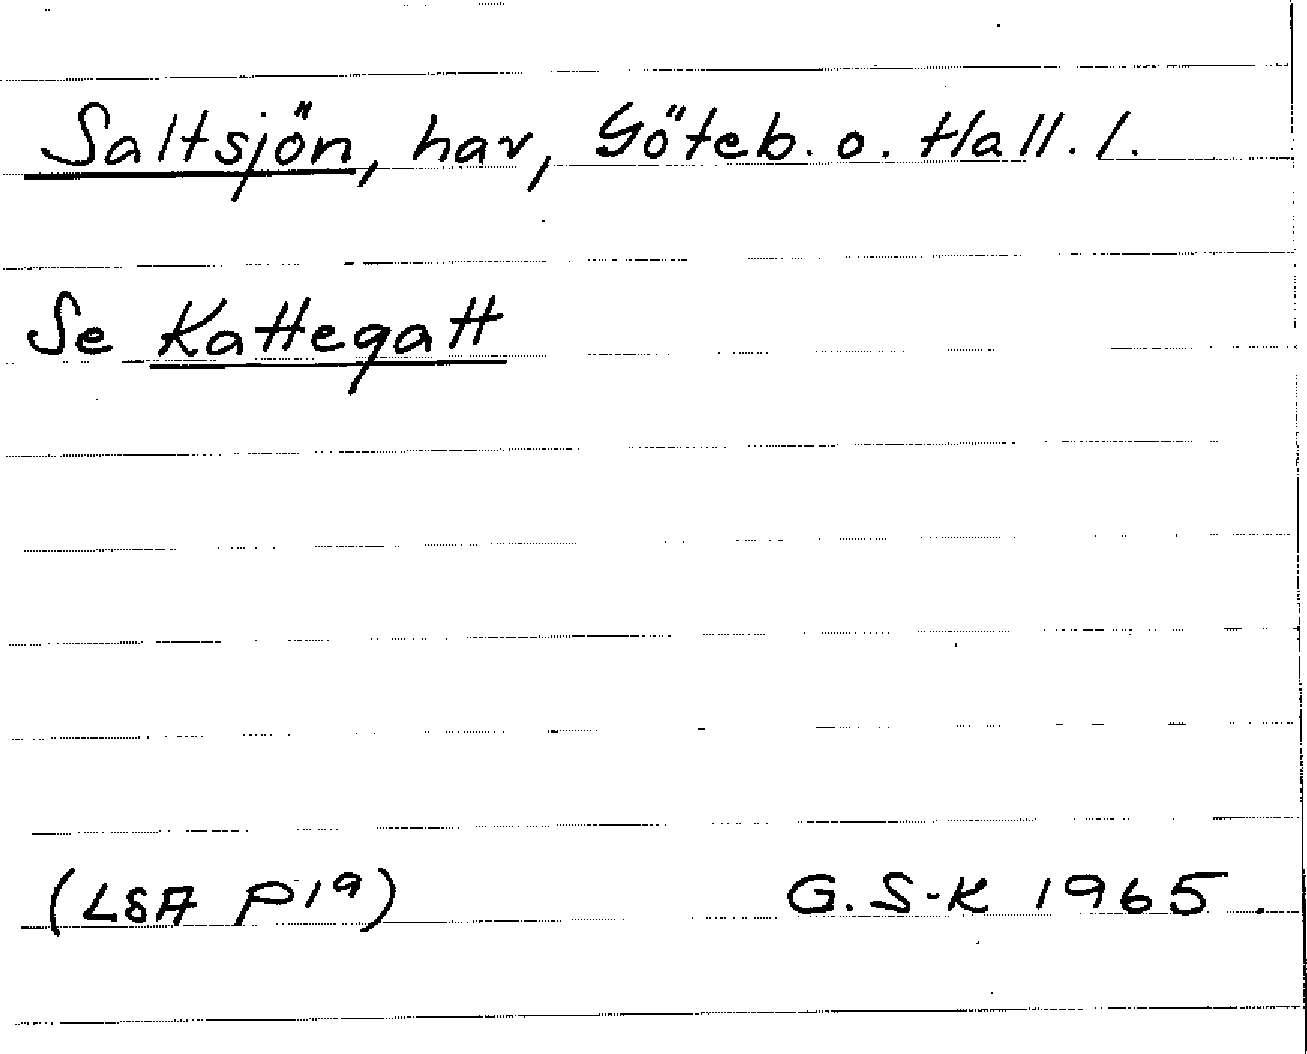 Saltsjön, hav, Göteb. o. Hall. l.
Se Kattegatt
(LSA P19) G. S-K 1965.